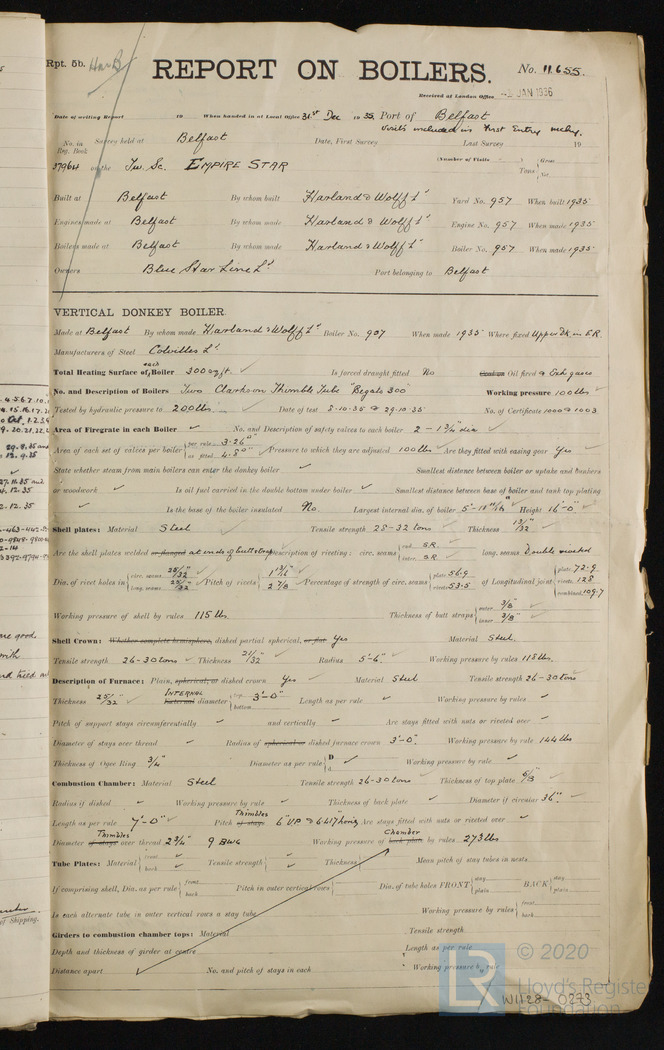 Rpt. 5b.
REPORT ON BOILERS.
No. 11655.
Received at London Office
JAN 1936
Date of writing Report 19 When handed in at Local Office 31st Dec 1935. Port of Belfast
Visits included in First Entry mchy.
No. in Reg. Book Survey held at Belfast Date, First Survey Last Survey 19
37964 on the Tw. Sc. EMPIRE STAR (Number of Visits ) Tons Gross Net
Built at Belfast By whom built Harland & Wolff Ld Yard No. 957 When built 1935
Engines made at Belfast By whom made Harland & Wolff Ld Engine No. 957 When made 1935
Boilers made at Belfast By whom made Harland & Wolff Ld Boiler No. 957 When made 1935
Owners Blue Star Line Ld Port belonging to Belfast
VERTICAL DONKEY BOILER.
Made at Belfast By whom made Harland & Wolff Ld Boiler No. 957 When made 1935 Where fixed Upper Dk. in E.R.
Manufacturers of Steel Colvilles Ld
Total Heating Surface of each Boiler 300 sq. ft. Is forced draught fitted No Oil fired & Exh gases
No. and Description of Boilers Two Clarkson Thimble Tube "Regals 300" Working pressure 100 lbs
Tested by hydraulic pressure to 200 lbs. Date of test 8-10-35 & 29.10.35 No. of Certificate 1000 & 1003
Area of Firegrate in each Boiler No. and Description of safety valves to each boiler 2 - 1 3/4" dia
Area of each set of valves per boiler per rule 3.26" as fitted 4.80" Pressure to which they are adjusted 100 lbs Are they fitted with easing gear Yes
State whether steam from main boilers can enter the donkey boiler Smallest distance between boiler or uptake and bunkers
or woodwork Is oil fuel carried in the double bottom under boiler Smallest distance between base of boiler and tank top plating
Is the base of the boiler insulated No. Largest internal dia. of boiler 5'-10 11/16" Height 16'-0"
Shell plates: Material Steel Tensile strength 28-32 tons Thickness 13/32"
Are the shell plates welded or flanged at ends of butt straps Description of riveting: circ. seams end S.R. inter. S.R. long. seams Double riveted
Dia. of rivet holes in circ. seams 25/32" long. seams 25/32" Pitch of rivets 2 7/8 Percentage of strength of circ. seams plate 56.9 rivets 53.5 of Longitudinal joint plate 72.9. rivets 128 combined 109.7
Working pressure of shell by rules 115 lbs. Thickness of butt straps outer 3/8" inner 3/8"
Shell Crown: Whether complete hemisphere, dished partial spherical, or flat Yes Material Steel.
Tensile strength 26-30 tons Thickness 21/32" Radius 5'-6". Working pressure by rules 118 lbs.
Description of Furnace: Plain, spherical, or dished crown Yes Material Steel Tensile strength 26-30 tons
Thickness 25/32" INTERNAL External diameter top bottom 3'-0" Length as per rule Working pressure by rules
Pitch of support stays circumferentially and vertically Are stays fitted with nuts or riveted over
Diameter of stays over thread Radius of spherical or dished furnace crown 3'-0". Working pressure by rule 144 lbs
Thickness of Ogee Ring 3/4" Diameter as per rule D d Working pressure by rule
Combustion Chamber: Material Steel Tensile strength 26-30 tons Thickness of top plate 5/8"
Radius if dished Working pressure by rule Thickness of back plate Diameter if circular 36".
Length as per rule 7'-0" Pitch of stays Thimbles 6" VP & 6.417 horiz Are stays fitted with nuts or riveted over
Diameter of stays Thimbles over thread 2 3/4" 9 BWG Working pressure of back plate Chamber by rules 273 lbs
Tube Plates: Material front back Tensile strength Thickness Mean pitch of stay tubes in nests
If comprising shell, Dia. as per rule front back Pitch in outer vertical rows Dia. of tube holes FRONT stay plain BACK stay plain
Is each alternate tube in outer vertical rows a stay tube Working pressure by rules front back
Girders to combustion chamber tops: Material Tensile strength
Depth and thickness of girder at centre Length as per rule
Distance apart No. and pitch of stays in each Working pressure by rule
© 2020
Lloyd's Register
Foundation
W1128-0273